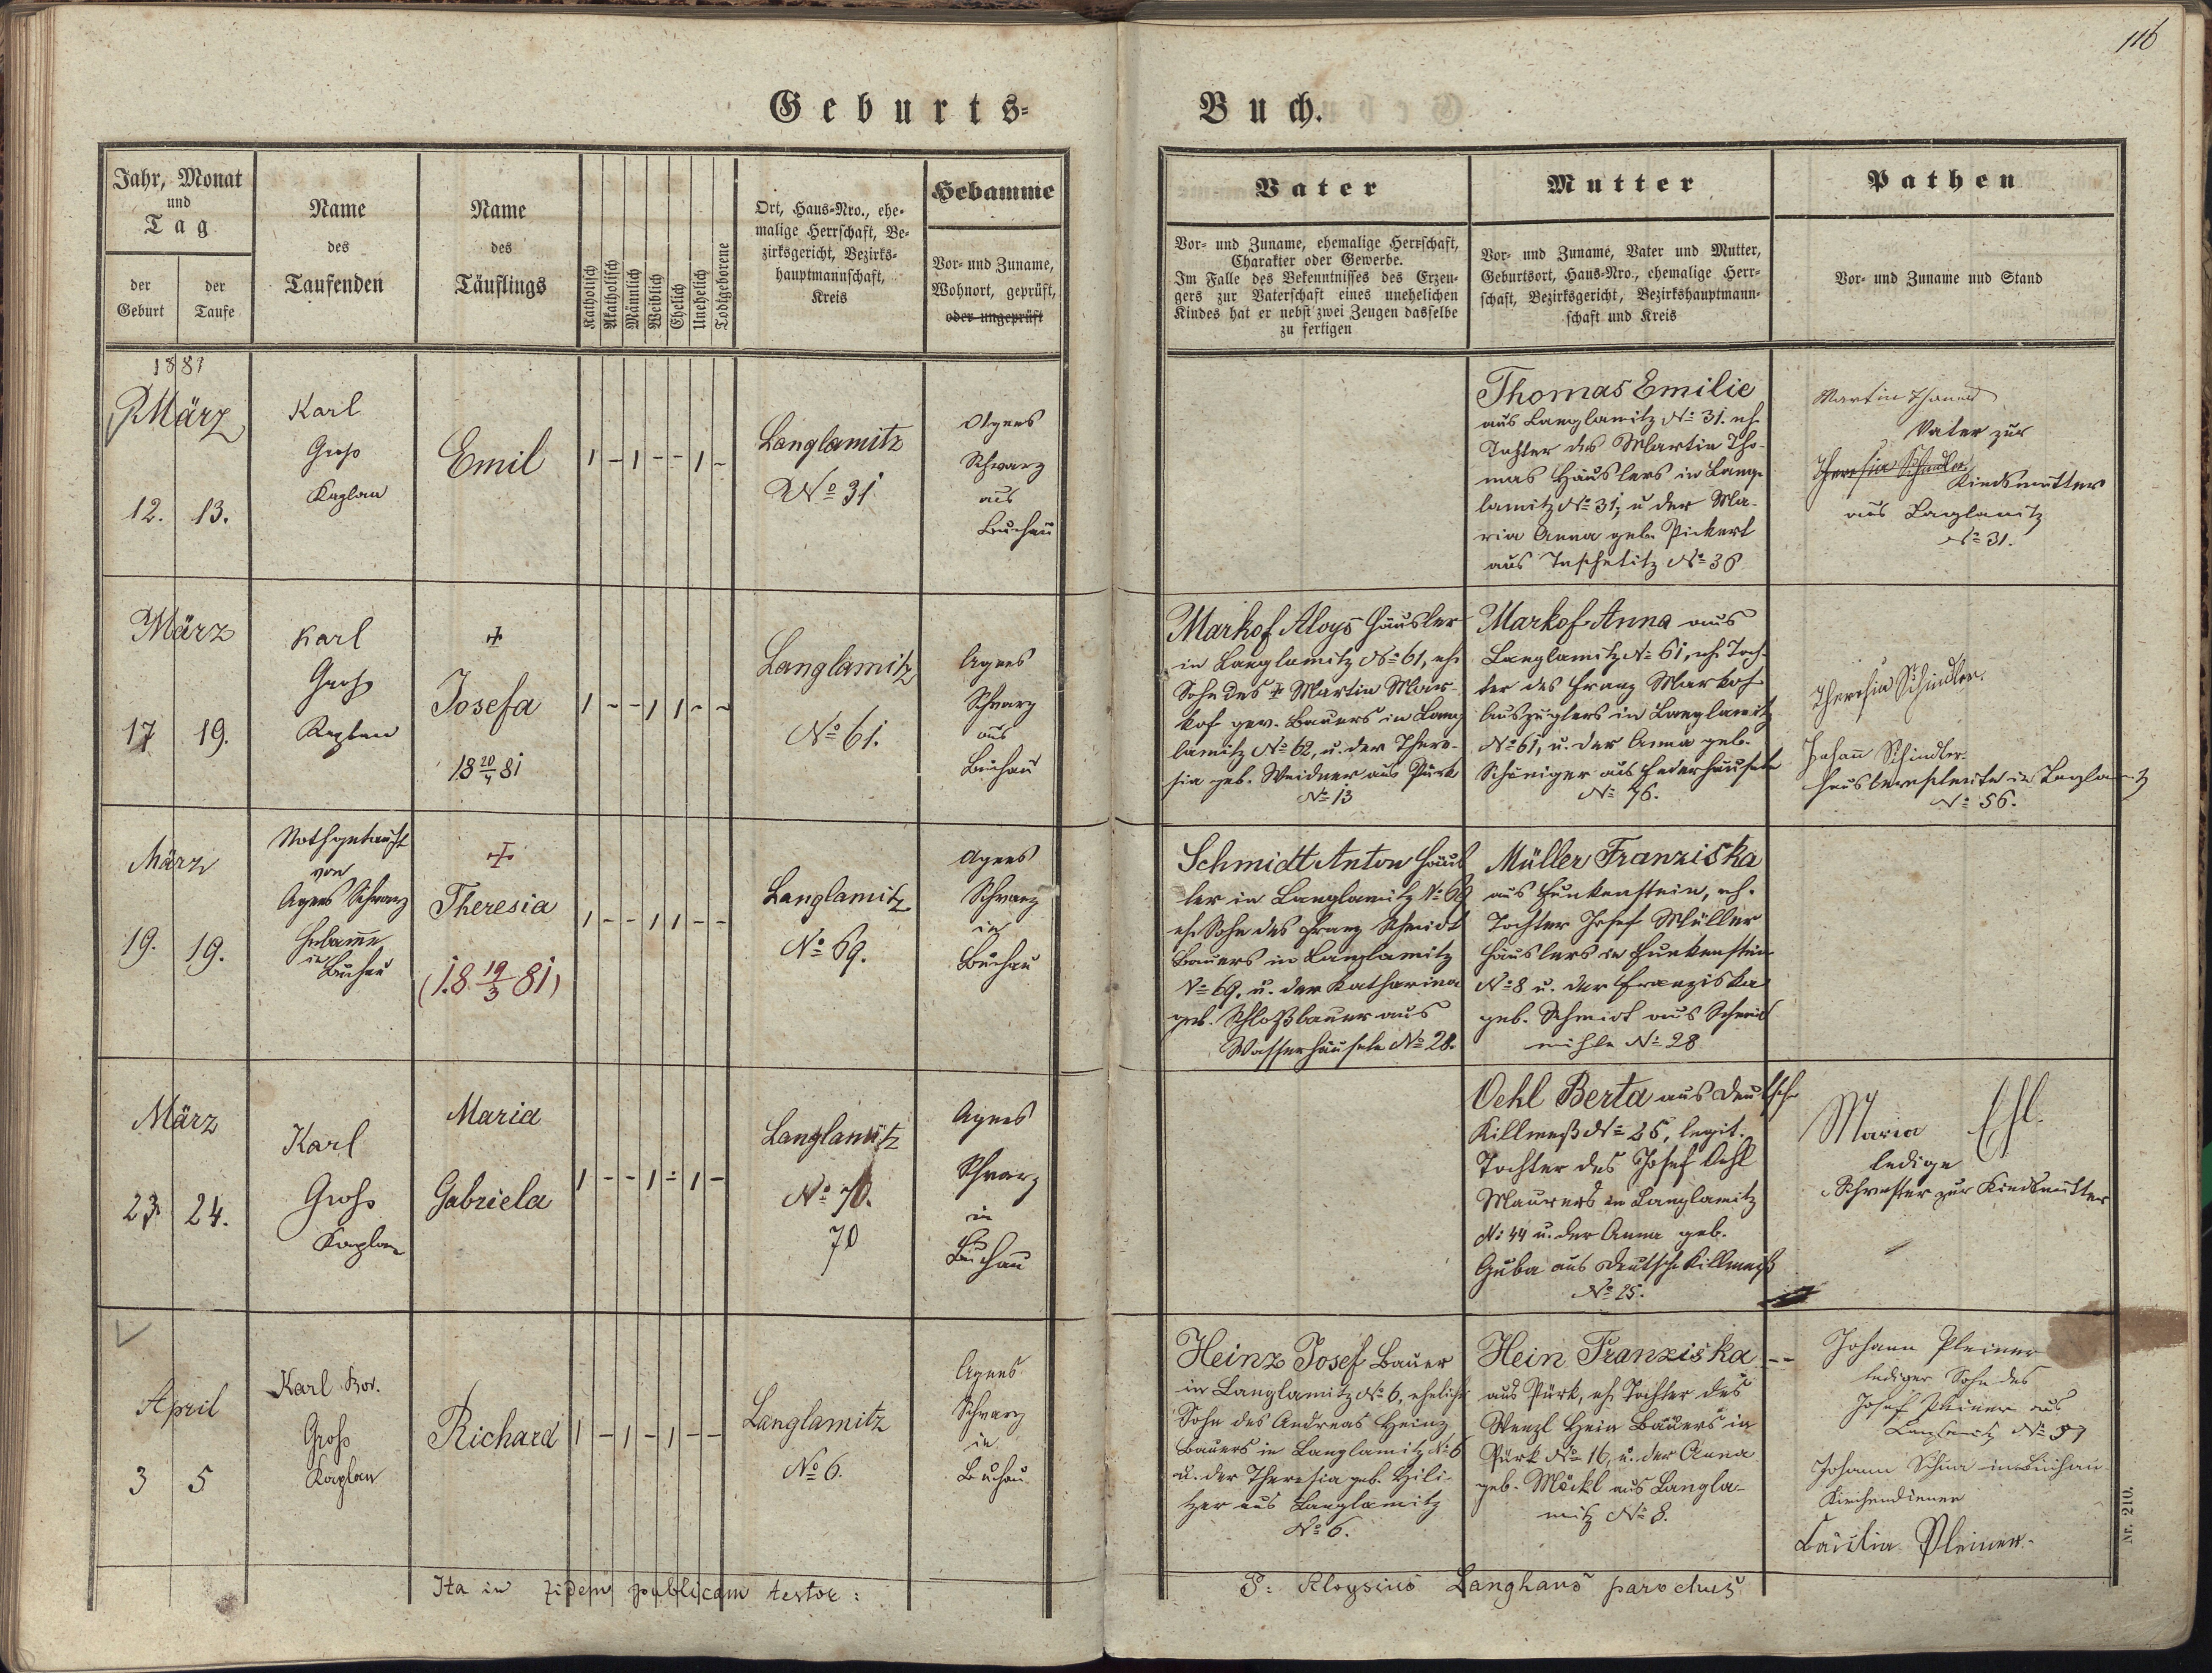 116
Geburts-
Buch.
Jahr, Monat
und
Tag
der
Geburt
der
Taufe
Name
des
Taufenden
Name
des
Täuflings
Katholisch
Akatholisch
Männlich
Weiblich
Ehelich
Unehelich
Todtgeborene
Ort, Haus-Nro., ehe-
malige Herrschaft, Be-
zirksgericht, Bezirks-
hauptmannschaft,
Kreis
Hebamme
Vor- und Zuname,
Wohnort, geprüft,
oder ungeprüft
Vater
Vor- und Zuname, ehemalige Herrschaft,
Charakter oder Gewerbe.
Im Falle des Bekenntnisses des Erzeu-
gers zur Vaterschaft eines unehelichen
Kindes hat er nebst zwei Zeugen dasselbe
zu fertigen
Mutter
Vor- und Zuname, Vater und Mutter,
Geburtsort, Haus-Nro., ehemalige Herr-
schaft, Bezirksgericht, Bezirkshauptmann-
schaft und Kreis
Pathen
Vor- und Zuname und Stand
1881
März
12. 13.
Karl
Groß
Kaplan
Emil
1 - 1 - - 1 -
Langlamitz
No 31
Agnes
Schwarz
aus
Buchau
Thomas Emilie
aus Langlamitz No 31. eh.
Tochter des Martin Tho-
mas Häuslers in Lang-
lamitz No 31, u der Ma-
ria Anna geb. Pickert
aus Taschetitz No 36
Martin Thomas
Vater zur
Theresia Schindler
Kindsmutter
aus Langlamitz
No 31.
März
17 19.
Karl
Groß
Kaplan
+
Josefa
18 20/4 81
1 - - 1 1 - -
Langlamitz
No 61.
Agnes
Schwarz
aus
Buchau
Markof Aloys Häusler
in Langlamitz No 61, eh.
Sohn des + Martin Mar-
kof gew. Bauers in Lang
lamitz No 62, u. der There-
sia geb. Weidner aus Pürk
No 13
Markof Anna aus
Langlamitz No 61, eh. Toch-
ter des Franz Markof
Auszüglers in Langlamitz
No 61, u. der Anna geb.
Schöniger aus Haderhäuseln
No 76.
Theresia Schindler.
Johann Schindler
Häuslerseheleute in Langlamitz
No 56.
März
19. 19.
Nothgetauft
von
Agnes Schwarz
Hebamme
in Buchau
+
Theresia
(18 19/3 81)
1 - - 1 1 - -
Langlamitz
No 69.
Agnes
Schwarz
in
Buchau
Schmidt Anton Häus
ler in Langlamitz No 69
eh. Sohn des Franz Schmidt
Bauers in Langlamitz
No 69. u. der Katharina
geb. Schloßbauer aus
Wasserhäuseln No 28.
Müller Franziska
aus Funkenstein, eh.
Tochter Josef Müller
Häuslers in Funkenstein
No 8 u. der Franziska
geb. Schmidt aus Schneid
mühle No 28
März
23 24.
Karl
Groß
Kaplan
Maria
Gabriela
1 - - 1 - 1 -
Langlamitz
No 70.
70
Agnes
Schwarz
in
Buchau
Oehl Berta aus Deutsch
Killmeß No 25, legit.
Tochter des Josef Oehl
Maurers in Langlamitz
No 44 u. der Anna geb.
Guba aus Deutsch Killmeß
No 25.
Maria Ehl.
ledige
Schwester zur Kindsmutter
April
3 5
Karl Bor.
Groß
Kaplan
Richard
1 - 1 - 1 - -
Langlamitz
No 6.
Agnes
Schwarz
in
Buchau
Heinz Josef Bauer
in Langlamitz No 6, ehelich
Sohn des Andreas Heinz
Bauers in Langlamitz No 6
u. der Theresia geb. Hili-
tzer aus Langlamitz
No 6.
Hein Franziska --
aus Pürk, eh. Tochter des
Wenzl Hein Bauers in
Pürk No 16, u. der Anna
geb. Möckl aus Langla-
mitz No 8.
Johann Pleiner
lediger Sohn des
Josef Pleiner aus
Langlamitz No 37
Johann in Buchau
Kirchendiener
Cäcilia Pleiner.
Ita in fidem publicam testor:
P: Aloysius Langhans parochus
Nr. 210.